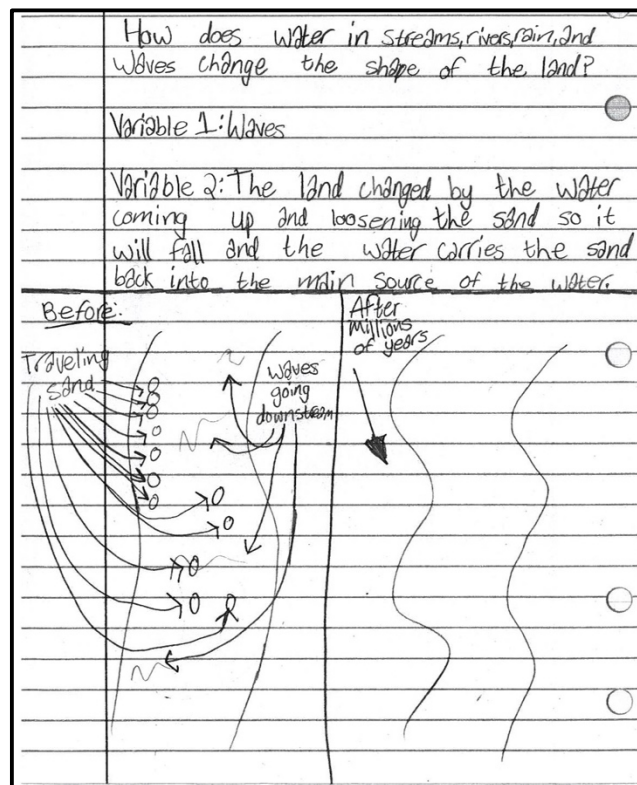 How does water in streams,rivers,rain,and
waves change the shape of the land?
Variable 1:Waves
Variable 2:The land changed by the water
coming up and loosening the sand so it
will fall and the water carries the sand
back into the main source of the water.
Before:
Traveling
sand
waves
going
downstream
After
millions
of years